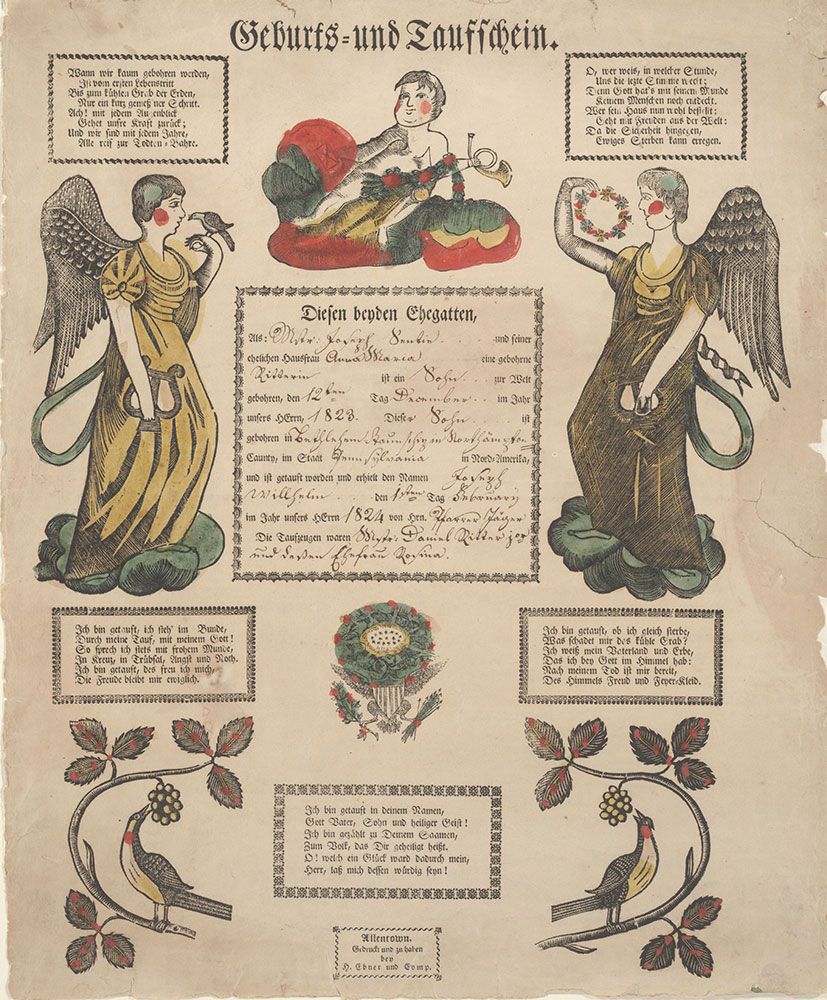 Geburts- und Taufschein.
Wann wir kaum gebohren werden,
Ist vom ersten Lebenstritt
Bis zum kühlen Grab der Erden,
Nur ein kurz gemeß'ner Schritt.
Ach! mit jedem Augenblick
Gehet unsre Kraft zurück;
Und wir sind mit jedem Jahre,
Alle reif zur Todten-Bahre.
O, wer weis, in welcher Stunde,
Uns die letzte Stimme weckt;
Denn Gott hat's mit seinem Munde
Keinem Menschen noch entdeckt.
Wer sein Haus nun wohl bestellt:
Geht mit Freuden aus der Welt:
Da die Sicherheit hingegen,
Ewiges Sterben kann erregen.
Diesen beyden Ehegatten,
Als: Mstr: Joseph und seiner
ehelichen Hausfrau Anna Maria eine gebohrne
Ritterin ist ein Sohn zur Welt
gebohren, den 12ten Tag December im Jahr
unsers HErrn, 1823. Dieser Sohn ist
gebohren in Bethlehem Taunschip in Northämpton
Caunty, im Staat Pennsylvania in Nord-Amerika,
und ist getauft worden und erhielt den Namen Joseph
Willhelm den 1sten Tag Februariy
im Jahr unsers HErrn 1824 von Hrn. Pfarrer Jäger
Die Taufzeugen waren Mstr: Daniel Ritter
und deßen Ehefrau Rosina.
Ich bin getauft, ich steh' im Bunde,
Durch meine Tauf, mit meinem Gott!
So sprech ich stets mit frohem Munde,
In Kreuz, in Trübsal, Angst und Noth.
Ich bin getauft, des freu ich mich,
Die Freude bleibt mir ewiglich.
Ich bin getauft, ob ich gleich sterbe,
Was schadet mir das kühle Grab?
Ich weiß mein Vaterland und Erbe,
Das ich bey Gott im Himmel hab:
Nach meinem Tod ist mir bereit,
Des Himmels Freud und Feyer-Kleid.
Ich bin getauft in deinem Namen,
Gott Vater, Sohn und heiliger Geist!
Ich bin gezählt zu Deinem Saamen,
Zum Volk, das Dir geheiligt heißt.
O! welch ein Glück ward dadurch mein,
Herr, laß mich dessen würdig seyn!
Allentown.
Gedruckt und zu haben
bey
H. Ebner und Comp.